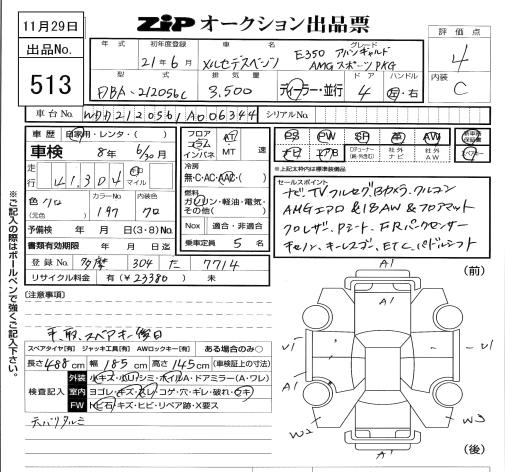 11月29日
ZiP オークション出品票
出品No.
513
年式 初年度登録 車名 グレード 評価点
21年6月 メルセデスベンツ E350 アバンギャルド
AMGスポーツPKG
4
型式 排気量 ドア ハンドル 内装
DBA-212056C 3,500 ディーラー・並行 4 右・左 C
車台No. WDD2120561A006344 シリアルNo.
車歴 自家用・レンタ・( )
車検 8年 6/30月
走行 41,304 km マイル
色 クロ カラーNo. 197 内装色 クロ
(元色)
予備検 年 月 日(3・8)No.
書類有効期限 年 月 日迄
登録No. 多摩 304 た 7714
リサイクル料金 有(¥23380) 未
フロア コラム インパネ AT・MT 速
冷房 無・C・AC・AAC・( )
燃料 ガソリン・軽油・電気・その他( )
Nox 適合・非適合
乗車定員 5 名
PS PW SR 革 AW
ナビ エアB
TVチューナー 社外ナビ 社外AW
*上記太枠内は標準装備品
セールスポイント
ナビTVフルセグBカメラ クルコン
AMGエアロ&18AW&フロアマット
クロレザー Pシート F.Rパークセンサー
キセノン キーレスゴー ETC パドルシフト
※ご記入の際はボールペンで強くご記入下さい。
[注意事項]
手、取、スペアキー後日
スペアタイヤ[有] ジャッキ工具[有] AWロックキー[有] ある場合のみ○
長さ 488 cm 幅 185 cm 高さ 145 cm (車検証上の寸法)
検査記入
外装 小キズ・小凹・シミ・ホイルA・ドアミラー(A・ワレ)
室内 ヨゴレ・キズ・スレ・コゲ・穴・ギレ・破れ・ワキ
FW トビ石・キズ・ヒビ・リペア跡・X要ス
天バリタルミ
(前)
A1
A1
U1
U1
A1
W2
W3
A1
(後)